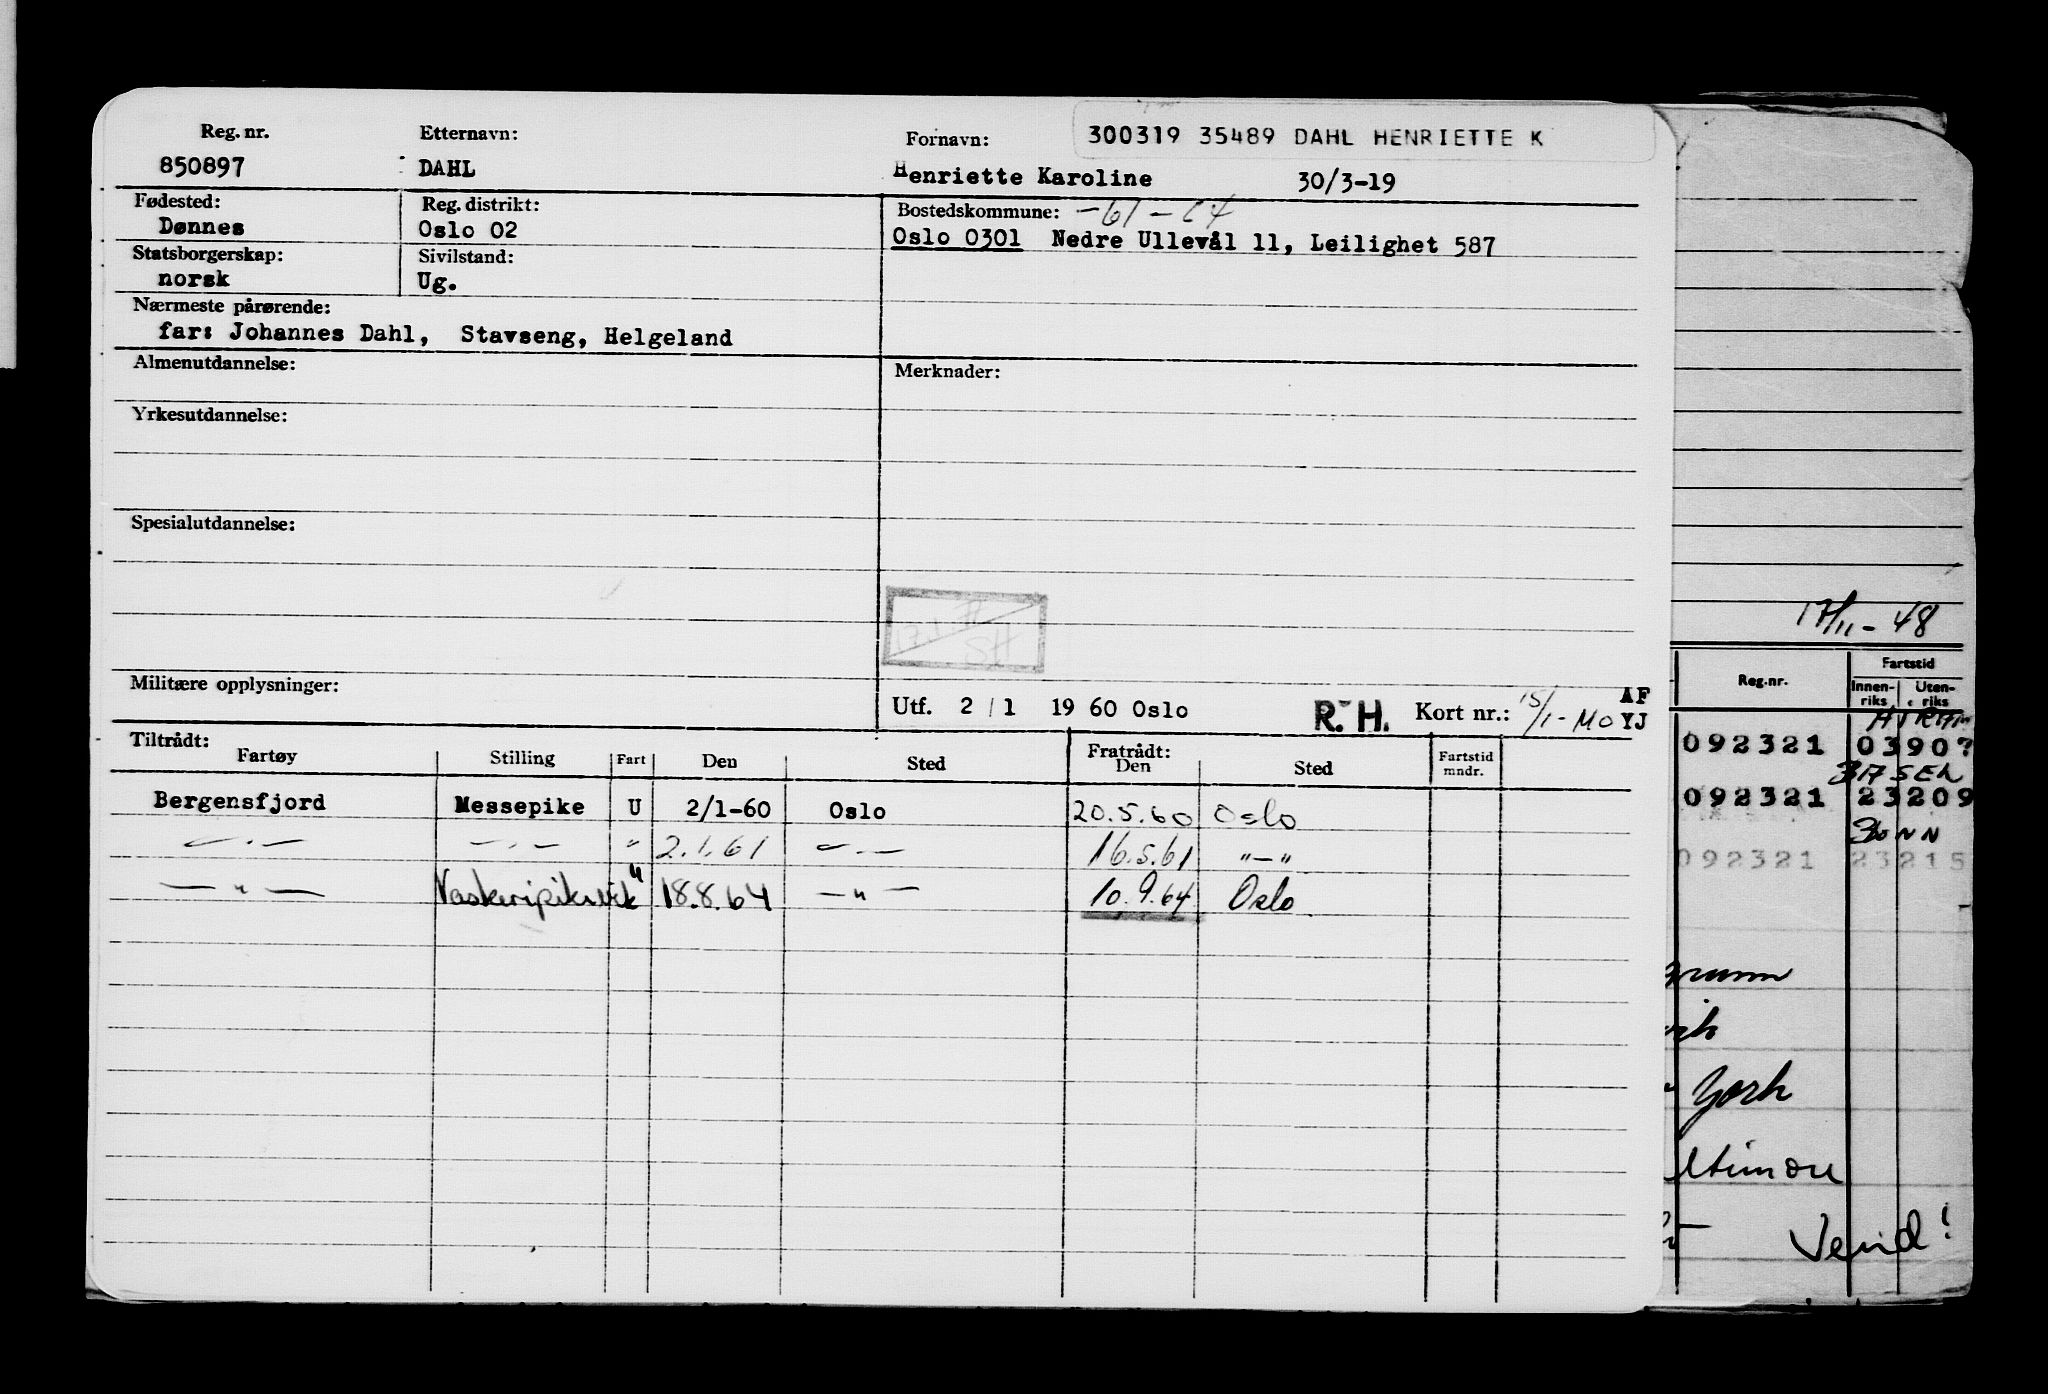 300319 35489 DAHL HENRIETTE K
Reg. nr. Etternavn: Fornavn:
850897 DAHL Henriette Karoline 30/3-19
Fødested: Reg. distrikt: Bostedskommune: -61-64
Dønnes Oslo 02 Oslo 0301 Nedre Ullevål 11, Leilighet 587
Statsborgerskap: Sivilstand:
norsk Ug.
Nærmeste pårørende:
far: Johannes Dahl, Stavseng, Helgeland
Almenutdannelse: Merknader:
Yrkesutdannelse:
Spesialutdannelse:
SH
Militære opplysninger:
Utf. 2/1 19 60 Oslo R. H. Kort nr.: 15/1-MO AF YJ
Tiltrådt: Fratrådt:
Fartøy Stilling Fart Den Sted Den Sted Fartstid mndr.
Bergensfjord Messepike U 2/1-60 Oslo 20.5.60 Oslo
— . — — . — " 2.1.61 — . — 16.5.61 "—"
— " — " 18.8.64 — " — 10.9.64 Oslo
17/11-48
Reg.nr. Fartstid
Innen-riks Uten-riks
092321 0390?
092321 23209
092321 23215
York
Vend!